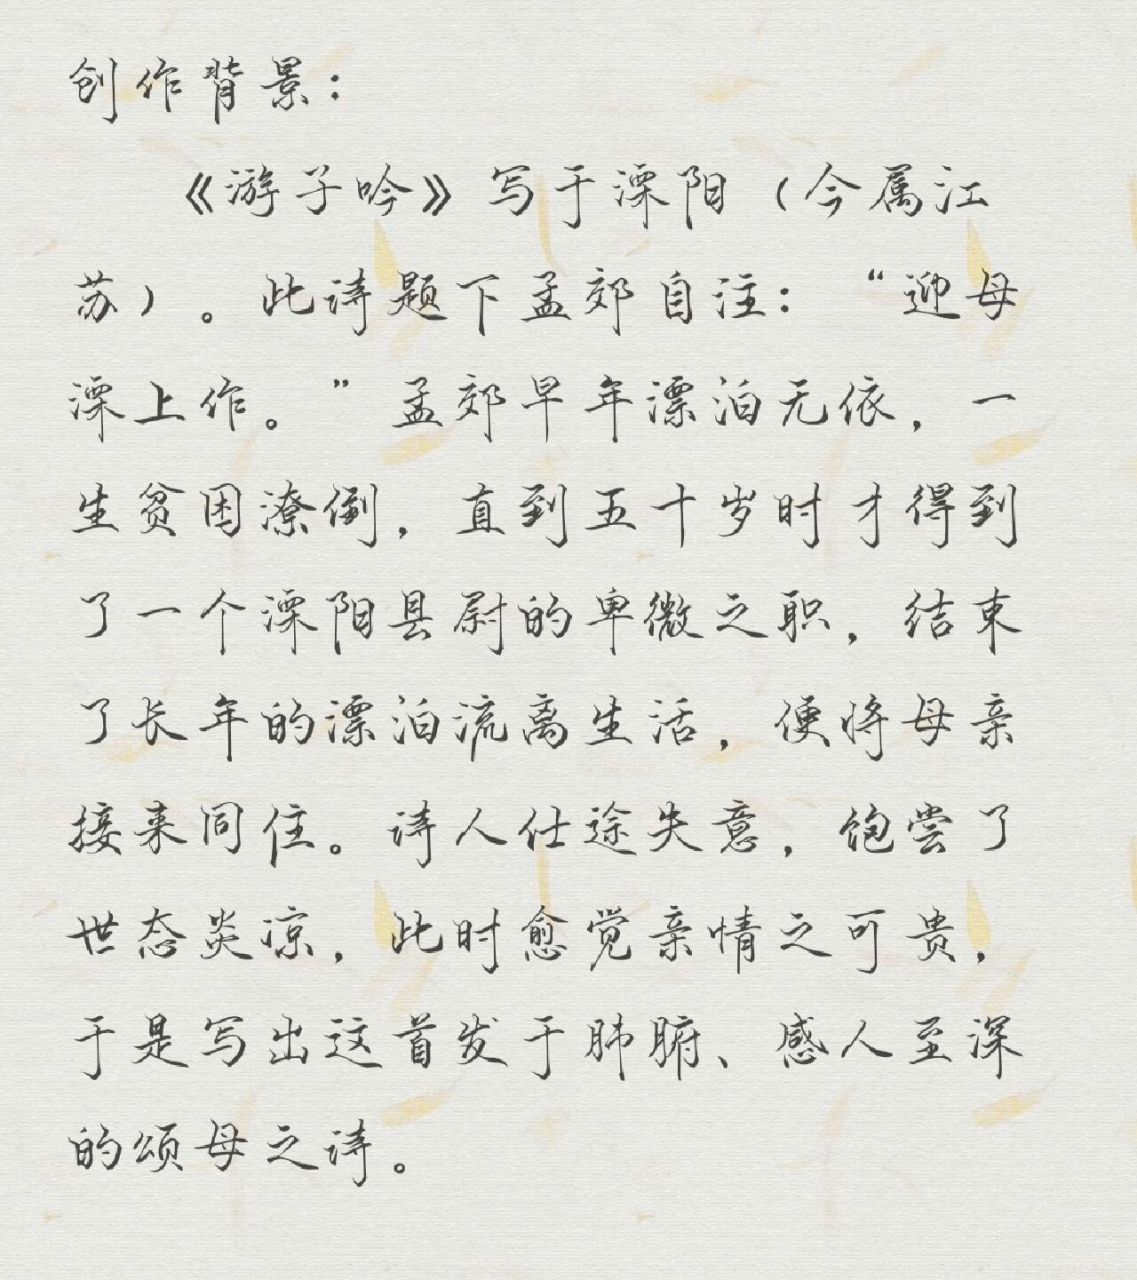 创作背景：
《游子吟》写于溧阳（今属江
苏）。此诗题下孟郊自注：“迎母
溧上作。”孟郊早年漂泊无依，一
生贫困潦倒，直到五十岁时才得到
了一个溧阳县尉的卑微之职，结束
了长年的漂泊流离生活，便将母亲
接来同住。诗人仕途失意，饱尝了
世态炎凉，此时愈觉亲情之可贵，
于是写出这首发于肺腑、感人至深
的颂母之诗。